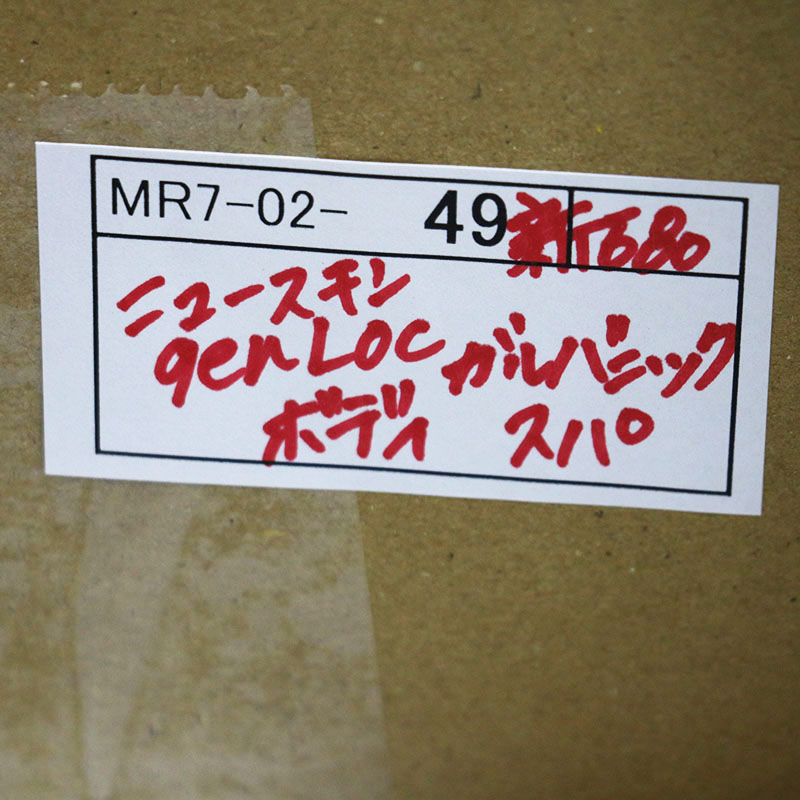 MR7-02- 49 新品80
ニュースキン
genLOC ガルバニック
ボディ スパ